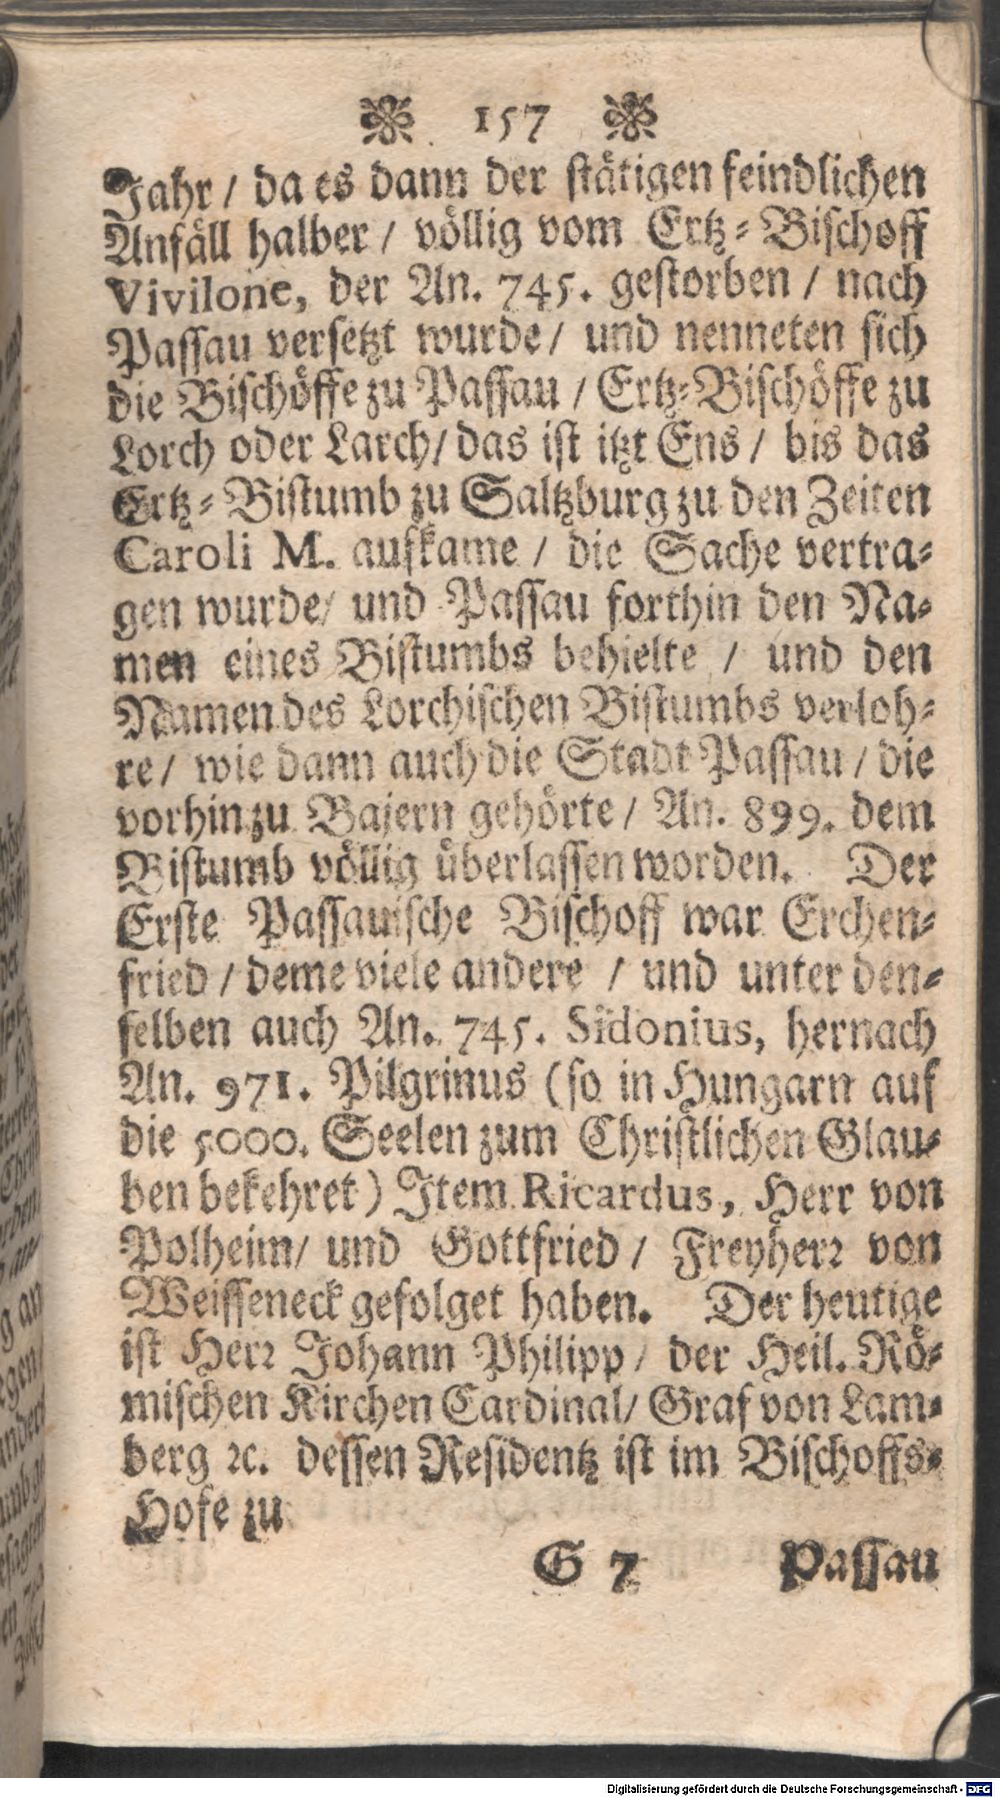 157
Jahr / da es dann der stätigen feindlichen
Anfäll halber / völlig vom Ertz-Bischoff
Vivilone, der An. 745. gestorben / nach
Passau versetzt wurde / und nenneten sich
die Bischöffe zu Passau / Ertz-Bischöffe zu
Lorch oder Larch / das ist itzt Ens / bis das
Ertz-Bistumb zu Saltzburg zu den Zeiten
Caroli M. aufkame / die Sache vertra-
gen wurde / und Passau forthin den Na-
men eines Bistumbs behielte / und den
Namen des Lorchischen Bistumbs verloh-
re / wie dann auch die Stadt Passau / die
vorhin zu Bajern gehörte / An. 899. dem
Bistumb völlig überlassen worden. Der
Erste Passauische Bischoff war Erchen-
fried / deme viele andere / und unter den-
selben auch An. 745. Sidonius, hernach
An. 971. Pilgrinus (so in Hungarn auf
die 5000. Seelen zum Christlichen Glau-
ben bekehret) Item Ricardus, Herr von
Polheim / und Gottfried / Freyherr von
Weisseneck gefolget haben. Der heutige
ist Herr Johann Philipp / der Heil. Rö-
mischen Kirchen Cardinal / Graf von Lam-
berg ꝛc. dessen Residentz ist im Bischoffs-
Hofe zu
G 7 Passau
Digitalisierung gefördert durch die Deutsche Forschungsgemeinschaft - DFG